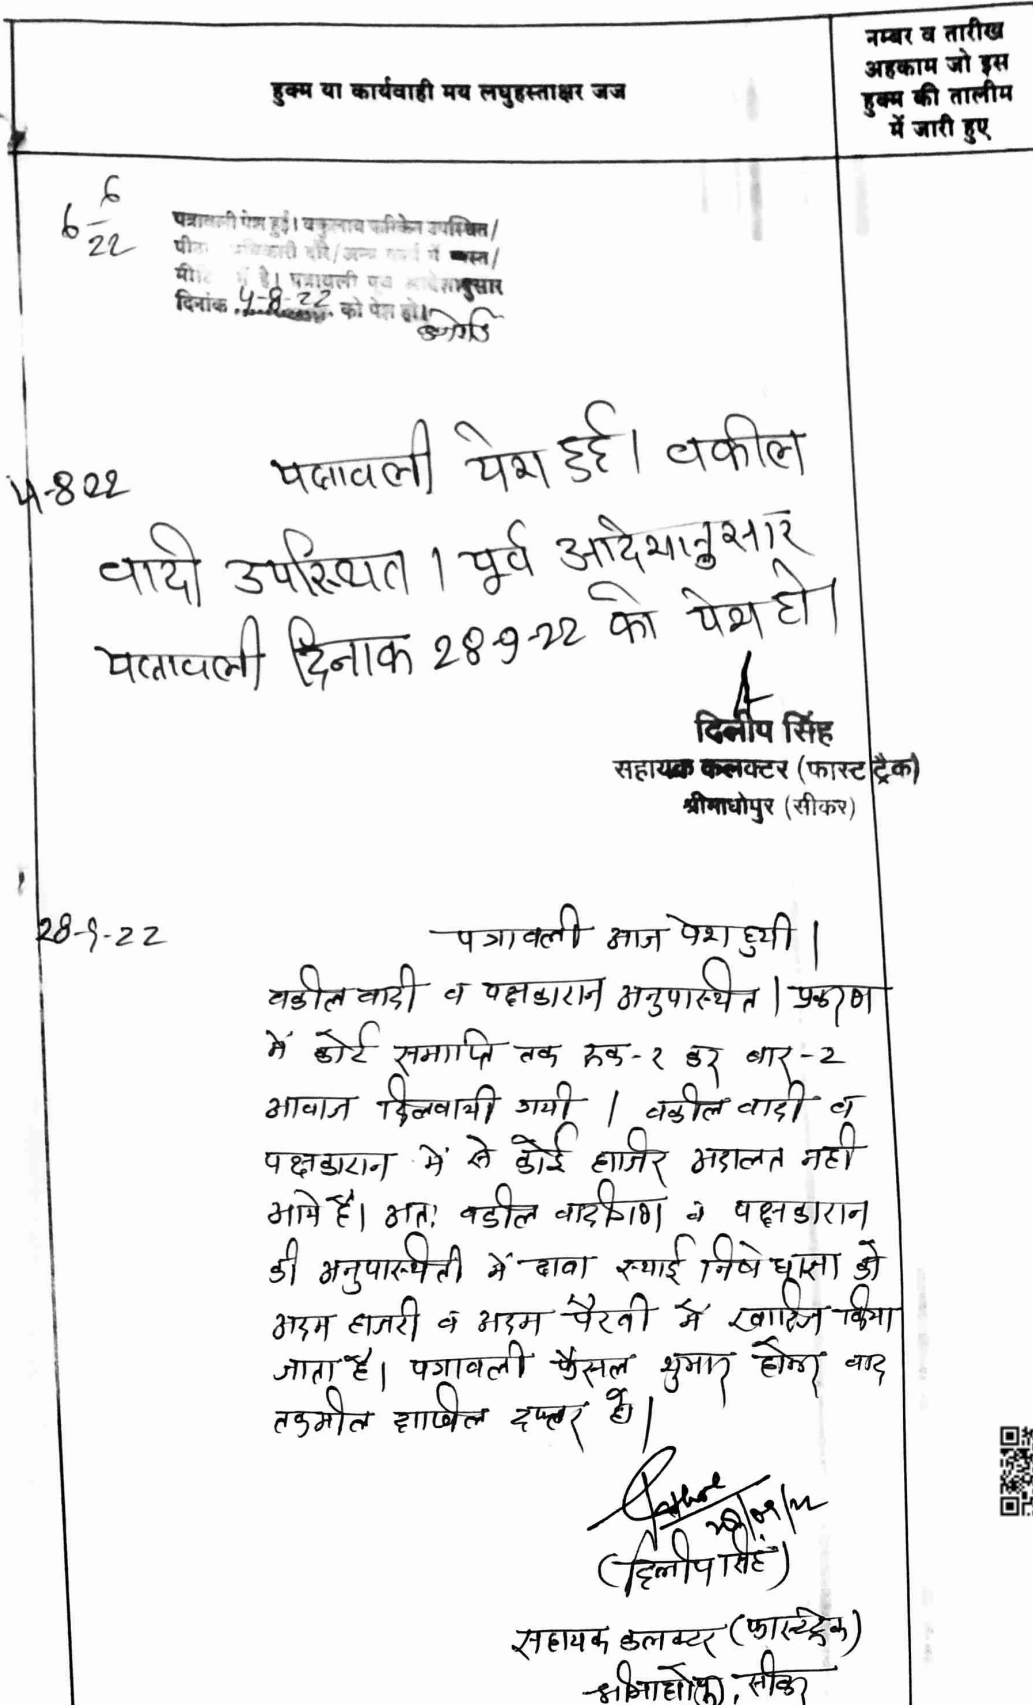 हुक्म या कार्यवाही मय लघुहस्ताक्षर जज
नम्बर व तारीख
अहकाम जो इस
हुक्म की तालीम
में जारी हुए
6-6-22
पत्रावली पेश हुई। वकुलाय फरिकेन उपस्थित/
दौरे/अन्य कार्य में व्यस्त/
में है। पत्रावली पूर्व आदेशानुसार
दिनांक 4-8-22 को पेश हो।
4-8 22
पत्रावली पेश हुई। वकील
वादी उपस्थित । पूर्व आदेशानुसार
पत्रावली दिनाक 28-9-22 को पेश हो।
दिलीप सिंह
सहायक कलक्टर (फास्ट ट्रैक)
श्रीमाधोपुर (सीकर)
28-9-22
पत्रावली आज पेश हुयी |
वकील वादी व पक्षकारान अनुपस्थित | प्रकरण
में कोर्ट समाप्ति तक रुक-२ कर बार-2
आवाज दिलवायी गयी | वकील वादी व
पक्षकारान में से कोई हाजिर अदालत नही
आये है। अतः वकील वादीगण व पक्षकारान
की अनुपस्थिती में दावा स्थाई निषेधाज्ञा को
अदम हाजरी व अदम पैरवी में खारिज किया
जाता है। पत्रावली फैसल शुमार होकर बाद
तकमील दाखिल दफ्तर हो |
28/09/22
(दिलीप सिंह)
सहायक कलक्टर (फास्ट ट्रेक)
श्रीमाधोपुर, सीकर